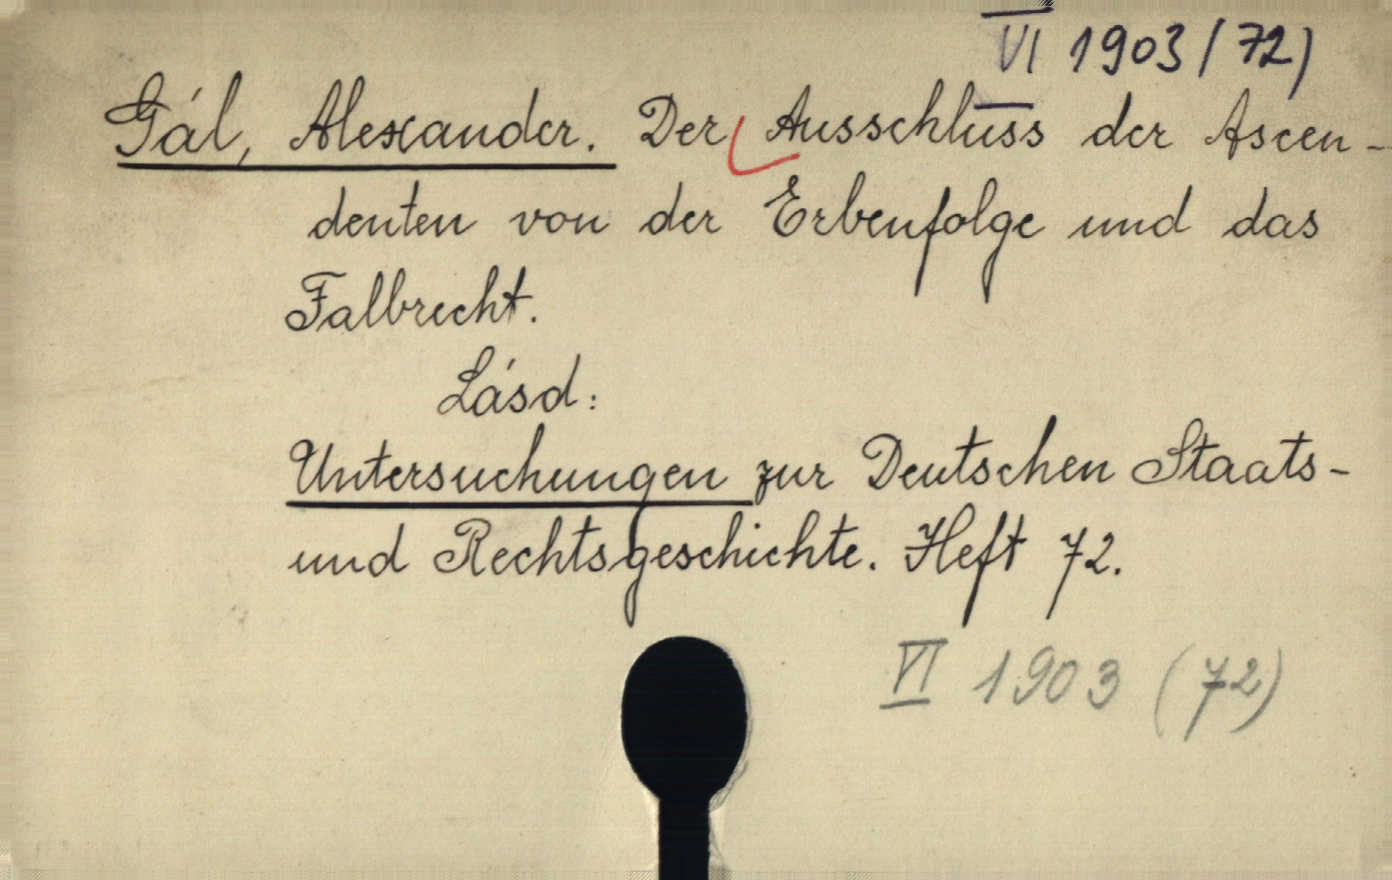 VI 1903/72)
Gál, Alexander. Der Ausschluss der Ascen-
denten von der Erbenfolge und das
Falbrecht.
Lásd:
Untersuchungen zur Deutschen Staats-
und Rechtsgeschichte. Heft 72.
VI 1903 (72)